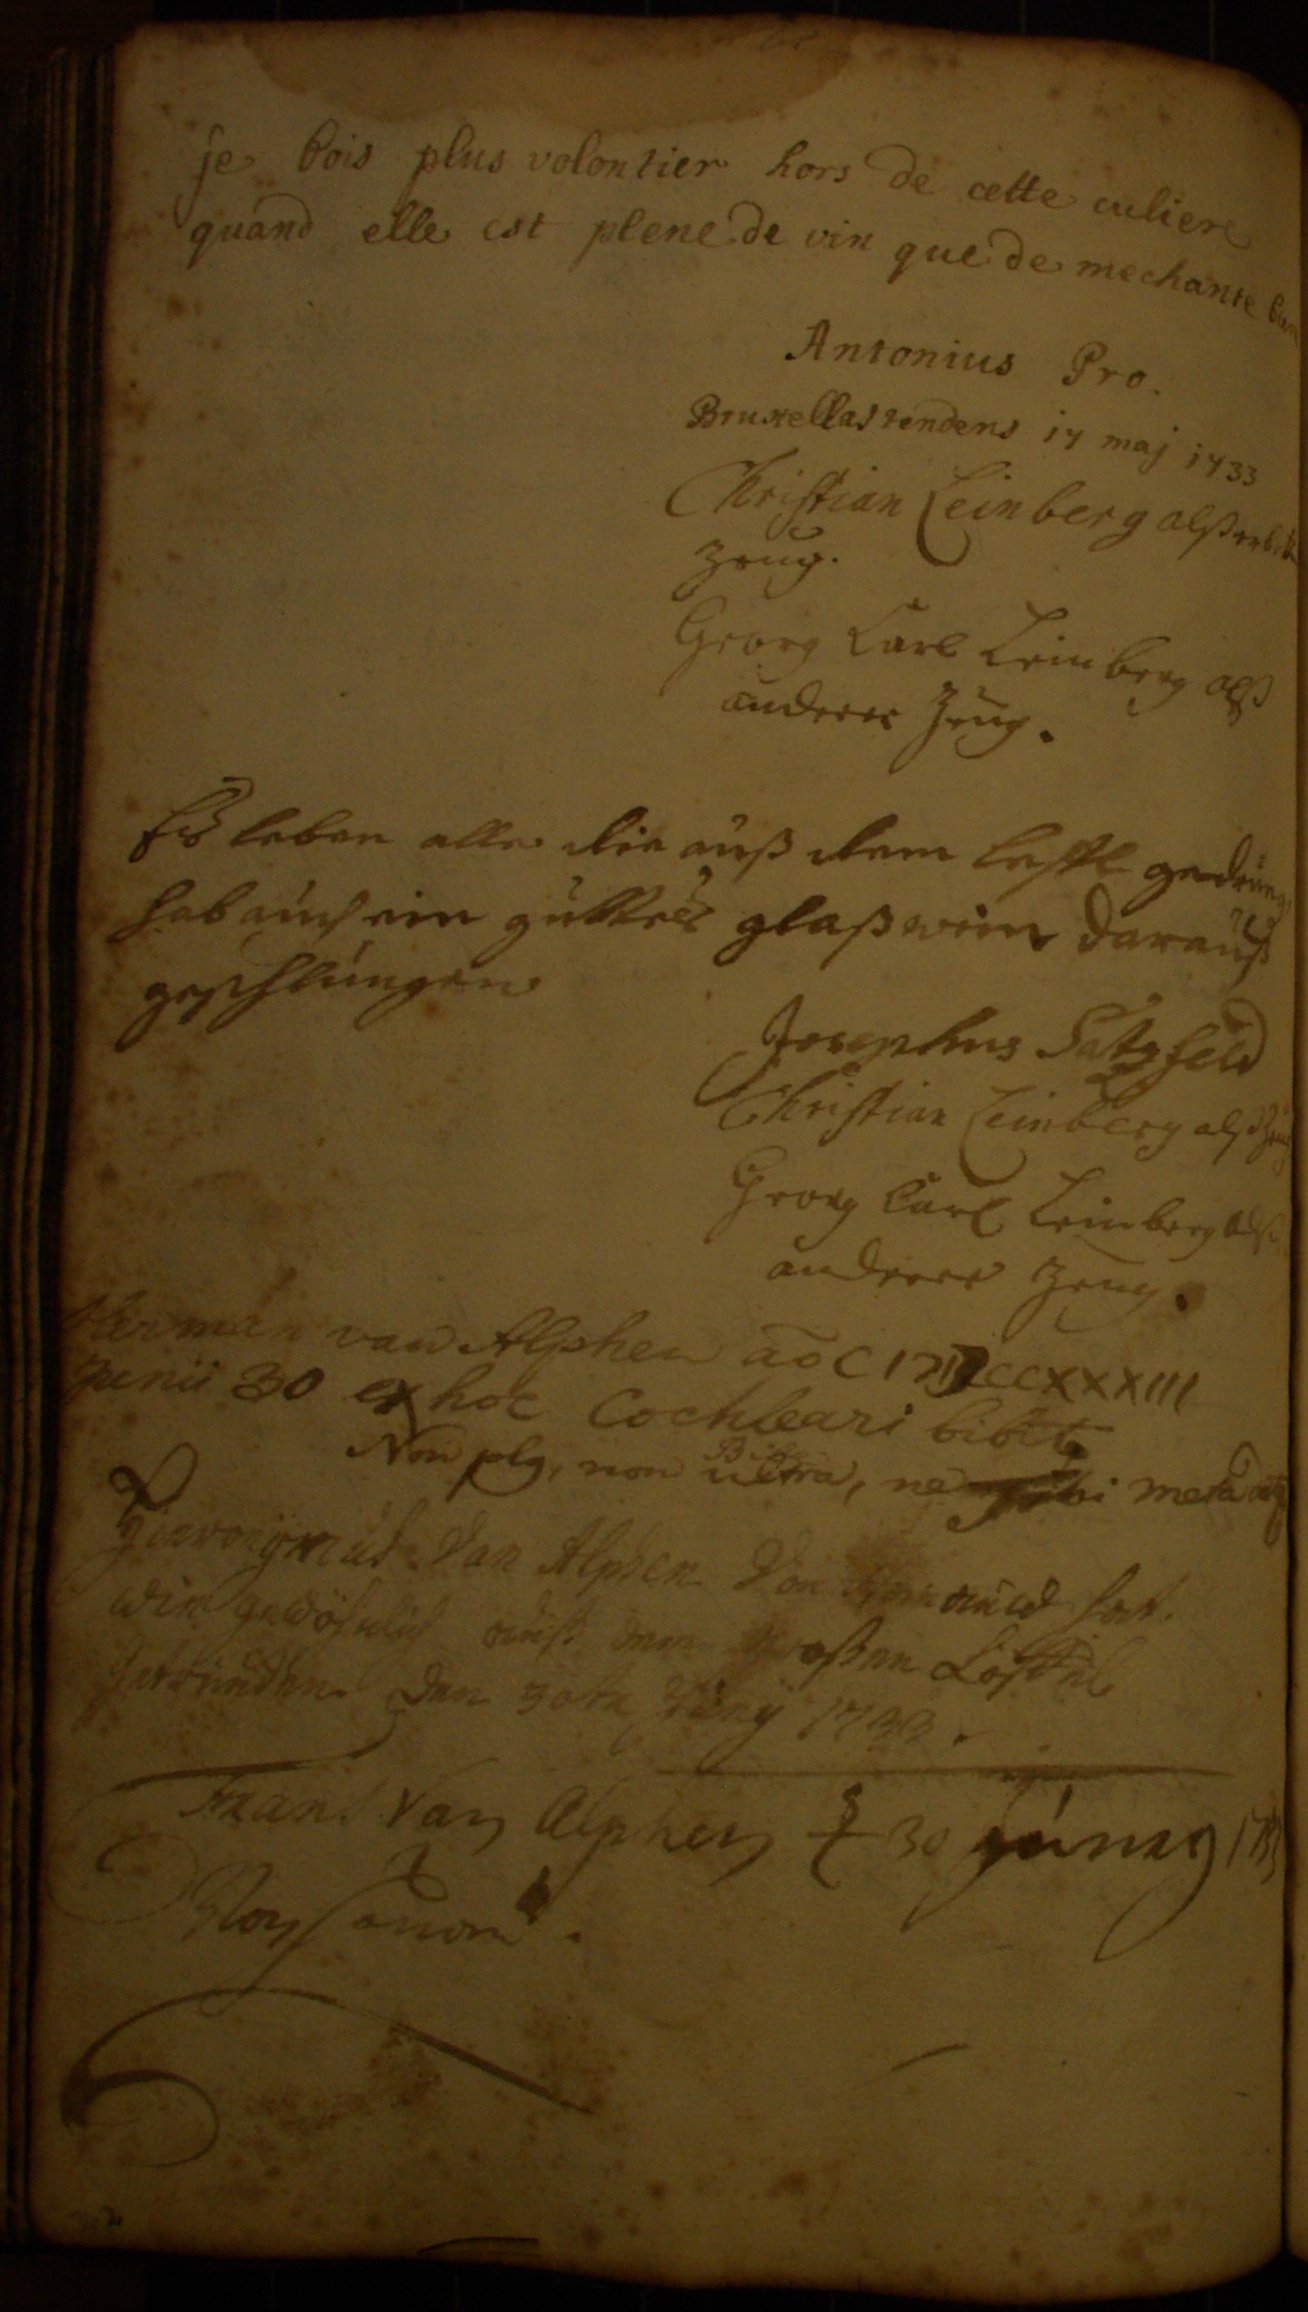 je bois plus volontier hors de cette culiere
quand elle est plene de vin que de mechante
Antonius Pro.
Bruxellas tendens 17 maj 1733
Christian Leinberg alß
Zeug.
Georg Carl Leinberg alß
anderer Zeug.
Es leben alle die auß dem leffel
hab auch ein guttes glaß wein darauß
geschlungen
Josephus Satzfeld
Christian Leinberg alß Zeug
Georg Carl Leinberg alß
anderer Zeug.
Herman van Alphen ao CIƆIƆCCXXXIII
Junii 30 ex hoc Cochleari bibit
Non plg, non ultra, ne
Hieronymus Van Alphen Von hat
wie gewöhnlich auß dem großen Löffel
getruncken den 30ten Juny 1733.
Van Alphen 30 Juney 1733